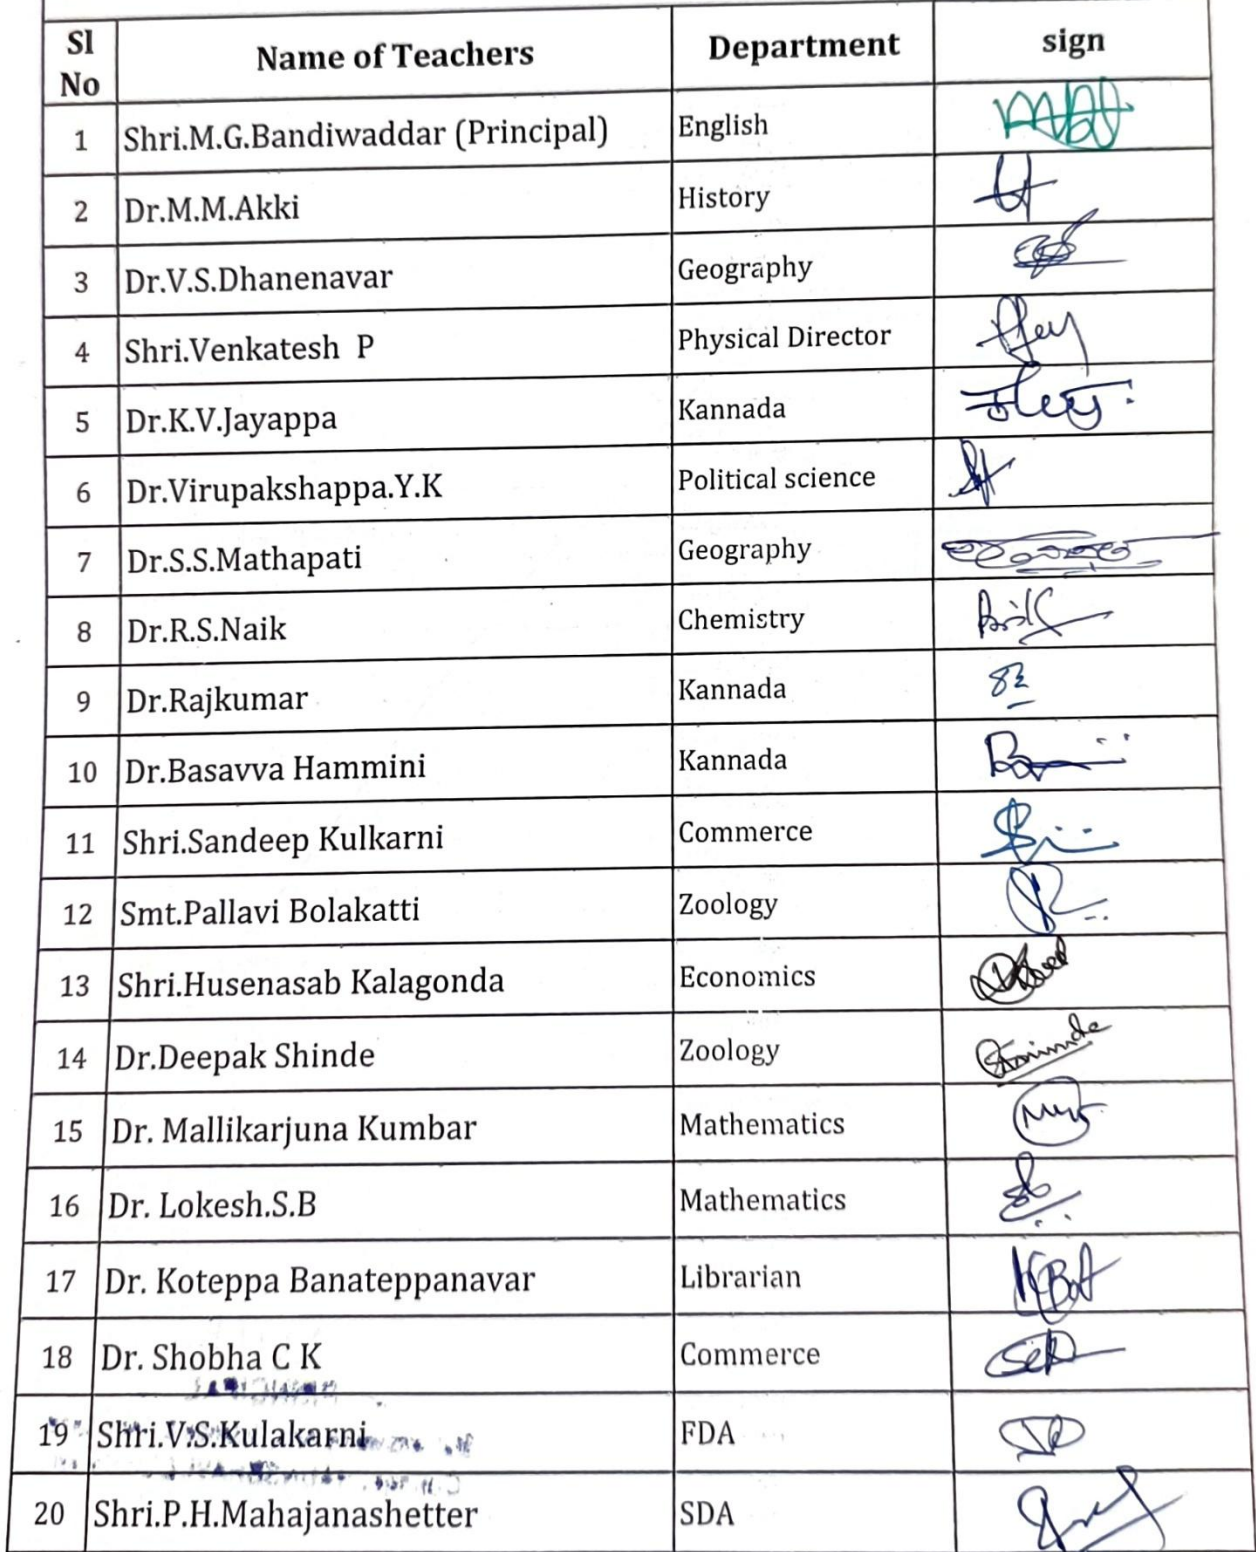 Sl No Name of Teachers Department sign
1 Shri.M.G.Bandiwaddar (Principal) English
2 Dr.M.M.Akki History
3 Dr.V.S.Dhanenavar Geography
4 Shri.Venkatesh P Physical Director
5 Dr.K.V.Jayappa Kannada
6 Dr.Virupakshappa.Y.K Political science
7 Dr.S.S.Mathapati Geography
8 Dr.R.S.Naik Chemistry
9 Dr.Rajkumar Kannada
10 Dr.Basavva Hammini Kannada
11 Shri.Sandeep Kulkarni Commerce
12 Smt.Pallavi Bolakatti Zoology
13 Shri.Husenasab Kalagonda Economics
14 Dr.Deepak Shinde Zoology
15 Dr. Mallikarjuna Kumbar Mathematics
16 Dr. Lokesh.S.B Mathematics
17 Dr. Koteppa Banateppanavar Librarian
18 Dr. Shobha C K Commerce
19 Shri.V.S.Kulakarni FDA
20 Shri.P.H.Mahajanashetter SDA